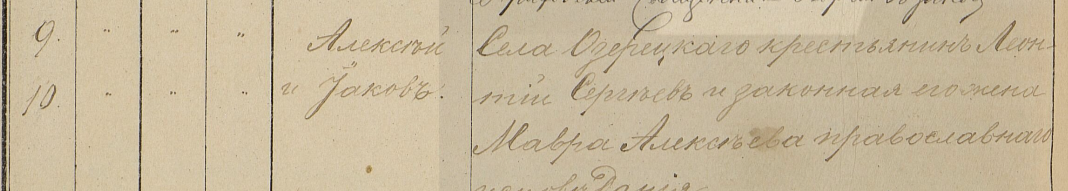 9. " " " Алексѣй Села Озерецкаго крестьянинъ Леон-
10. " " " и Іаковъ. тій Сергѣевъ и законная его жена
Мавра Алексѣева православнаго
исповѣданія